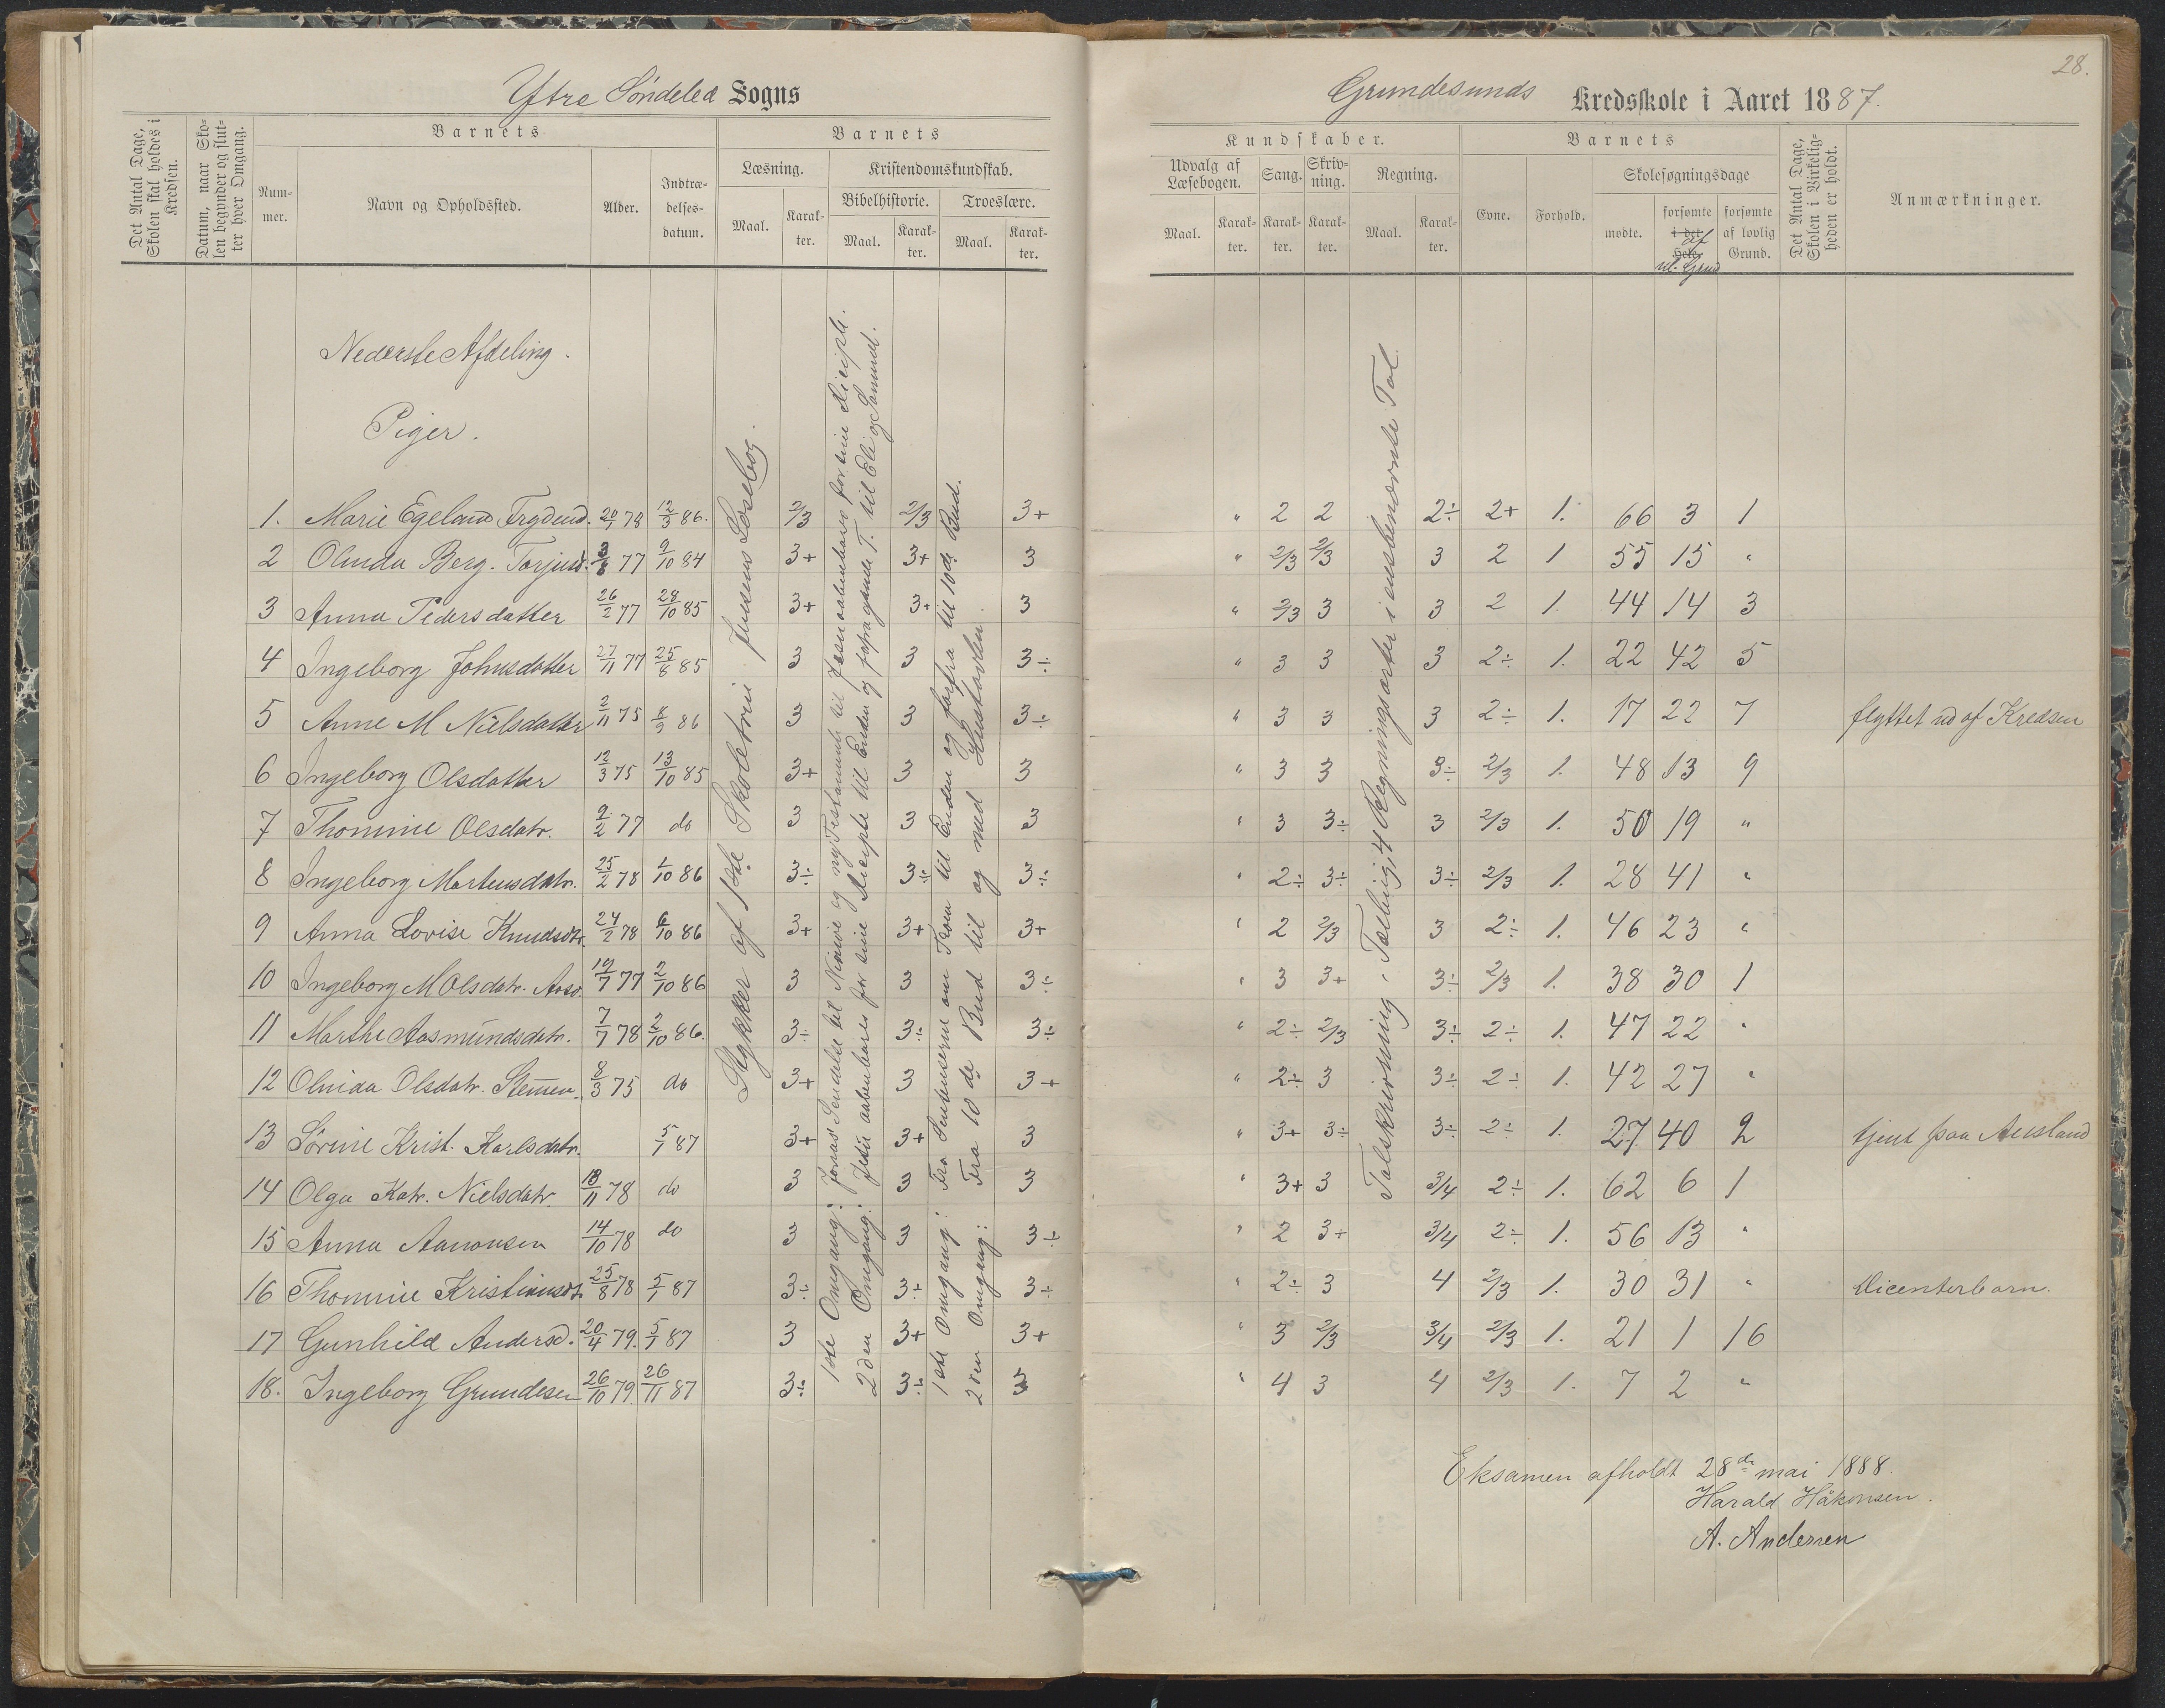 Ytre Søndeled Sogns
Det Antal Dage, Skolen skal holdes i Kredsen.
Datum, naar Skolen begynder og slutter hver Omgang.
Barnets
Nummer.
Navn og Opholdssted.
Alder.
Indtrædelsesdatum.
Barnets
Læsning.
Maal.
Karakter.
Kristendomskundskab.
Bibelhistorie.
Maal.
Karakter.
Troeslære.
Maal.
Karakter.
Nederste Afdeling.
Piger.
1. Marie Egeland Frydend. 20/1 78 12/3 86. 2/3 2/3 3+
2 Olinda Berg. Torjusd. 3/8 77 9/10 84 3+ 3+ 3
3 Anna Pedersdatter 26/2 77 28/10 85 3+ 3+ 3
4 Ingeborg Johnsdatter 27/11 77 25/8 85 3 3 3÷
5 Anne M Nielsdatter 2/11 75 8/9 86 3 3 3÷
6 Ingeborg Olsdatter 12/3 75 13/10 85 3+ 3 3
7 Thomine Olsdatr. 9/2 77 do 3 3 3
8 Ingeborg Martensdatr. 25/2 78 1/10 86 3÷ 3÷ 3÷
9 Anna Lovise Knudsdtr. 24/2 78 6/10 86 3+ 3+ 3+
10 Ingeborg M Olsdatr. 19/7 77 2/10 86 3 3 3÷
11 Marthe Aasmundsdatr. 7/7 78 2/10 86. 3÷ 3÷ 3÷
12 Olnida Olsdatr. Stemmen. 8/3 75 do 3+ 3 3+
13 Sørine Krist. Karlsdatr. 5/1 87 3+ 3+ 3
14 Olga Katr. Nielsdatr. 18/11 78 do 3 3 3
15 Anna Aanonsen 14/10 78 do 3 3 3÷
16 Thomine Kristiansdt. 25/8 78 5/1 87 3÷ 3÷ 3÷
17 Gunhild Andersd. 20/4 79. 5/1 87 3 3+ 3+
18. Ingeborg Grundesen 26/10 79. 26/11 87 3÷ 3÷ 3
Stykker af 1ste Skoletrin Jensens Læsebog.
1ste Omgang: Jonas' Sendelse til Ninive og ny Testamente til Jesus aabenbares for sine Disciple.
2den Omgang: Jesu aabenbares for sine Disciple til Enden og forfra gamle T. til Eli og Samuel.
1ste Omgang: Fra Sentenserne om Troen til Enden og forfra til 10de Bud.
2den Omgang: Fra 10de Bud til og med Hustavlen.
28.
Grundesunds Kredsskole i Aaret 1887.
Kundskaber.
Udvalg af Læsebogen.
Maal.
Karakter.
Sang.
Karakter.
Skrivning.
Karakter.
Regning.
Maal.
Karakter.
Barnets
Evne.
Forhold.
Skolesøgningsdage
mødte.
forsømte i det Hele. af ul. Grund
forsømte af lovlig Grund.
Det Antal Dage, Skolen i Virkeligheden er holdt.
Anmærkninger.
" 2 2 2÷ 2+ 1. 66 3 1
" 2/3 2/3 3 2 1 55 15 "
" 2/3 3 3 2 1. 44 14 3
" 3 3 3 2÷ 1. 22 42 5
" 3 3 3 2÷ 1. 17 22 7 flyttet ud af Kredsen
" 3 3 3÷ 2/3 1. 48 13 9
" 3 3÷ 3 2/3 1. 50 19 "
" 2÷ 3÷ 3÷ 2/3 1. 28 41 "
" 2 2/3 3 2÷ 1. 46 23 "
" 3 3+ 3÷ 2/3 1. 38 30 1
" 2÷ 2/3 3÷ 2÷ 1. 47 22 "
" 2÷ 3 3÷ 2÷ 1. 42 27 "
" 3+ 3÷ 3÷ 2÷ 1. 27 40 2 tjent paa Ausland
" 3+ 3 3/4 2÷ 1. 62 6 1
" 2 3+ 3/4 2÷ 1. 56 13 "
" 2÷ 3 4 2/3 1. 30 31 " Dicenterbarn.
" 3 2/3 3/4 2/3 1. 21 1 16
" 4 3 4 2/3 1. 7 2 "
Talskrivning. Tælling, 4 Regningsarter i eensbenævnte Tal.
Eksamen afholdt 28de mai 1888.
Harald Håkonsen.
A. Andersen